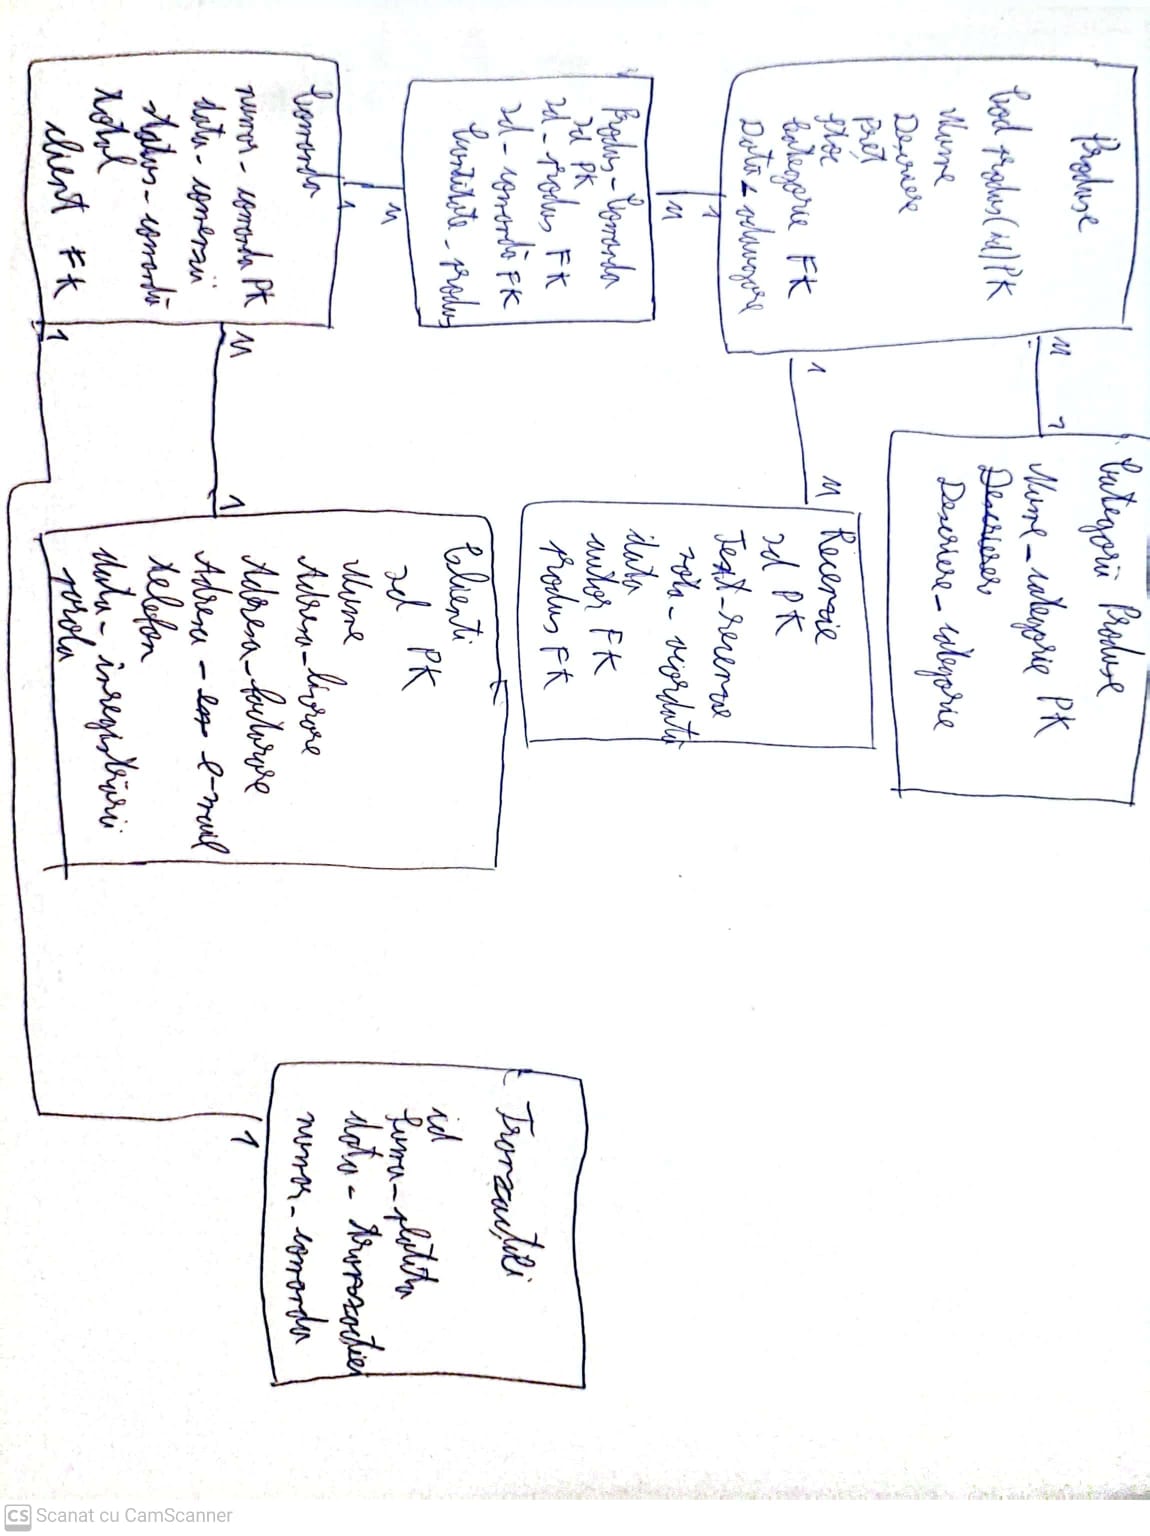 Produse
Cod produs(id) PK
Nume
Descriere
Pret
Stoc
Categorie FK
Dată_adaugare
M 1
Categorii Produse
Nume_categorie PK
Descriere_categorie
1 M
Recenzie
Id PK
Text_recenzie
nota_acordată
data
autor FK
produs FK
1
M
Produs_Comanda
Id PK
Id_produs FK
Id_comandă FK
Cantitate_produs
M
1
Comanda
numar_comanda PK
data_comenzii
status_comandă
total
client FK
M 1
Clienti
Id PK
Nume
Adresa_livrare
Adresa_facturare
Adresa_e-mail
telefon
data_inregistrării
parola
Tranzacții
id
Suma_platita
data_tranzactiei
numar_comanda
1
1
CS Scanat cu CamScanner